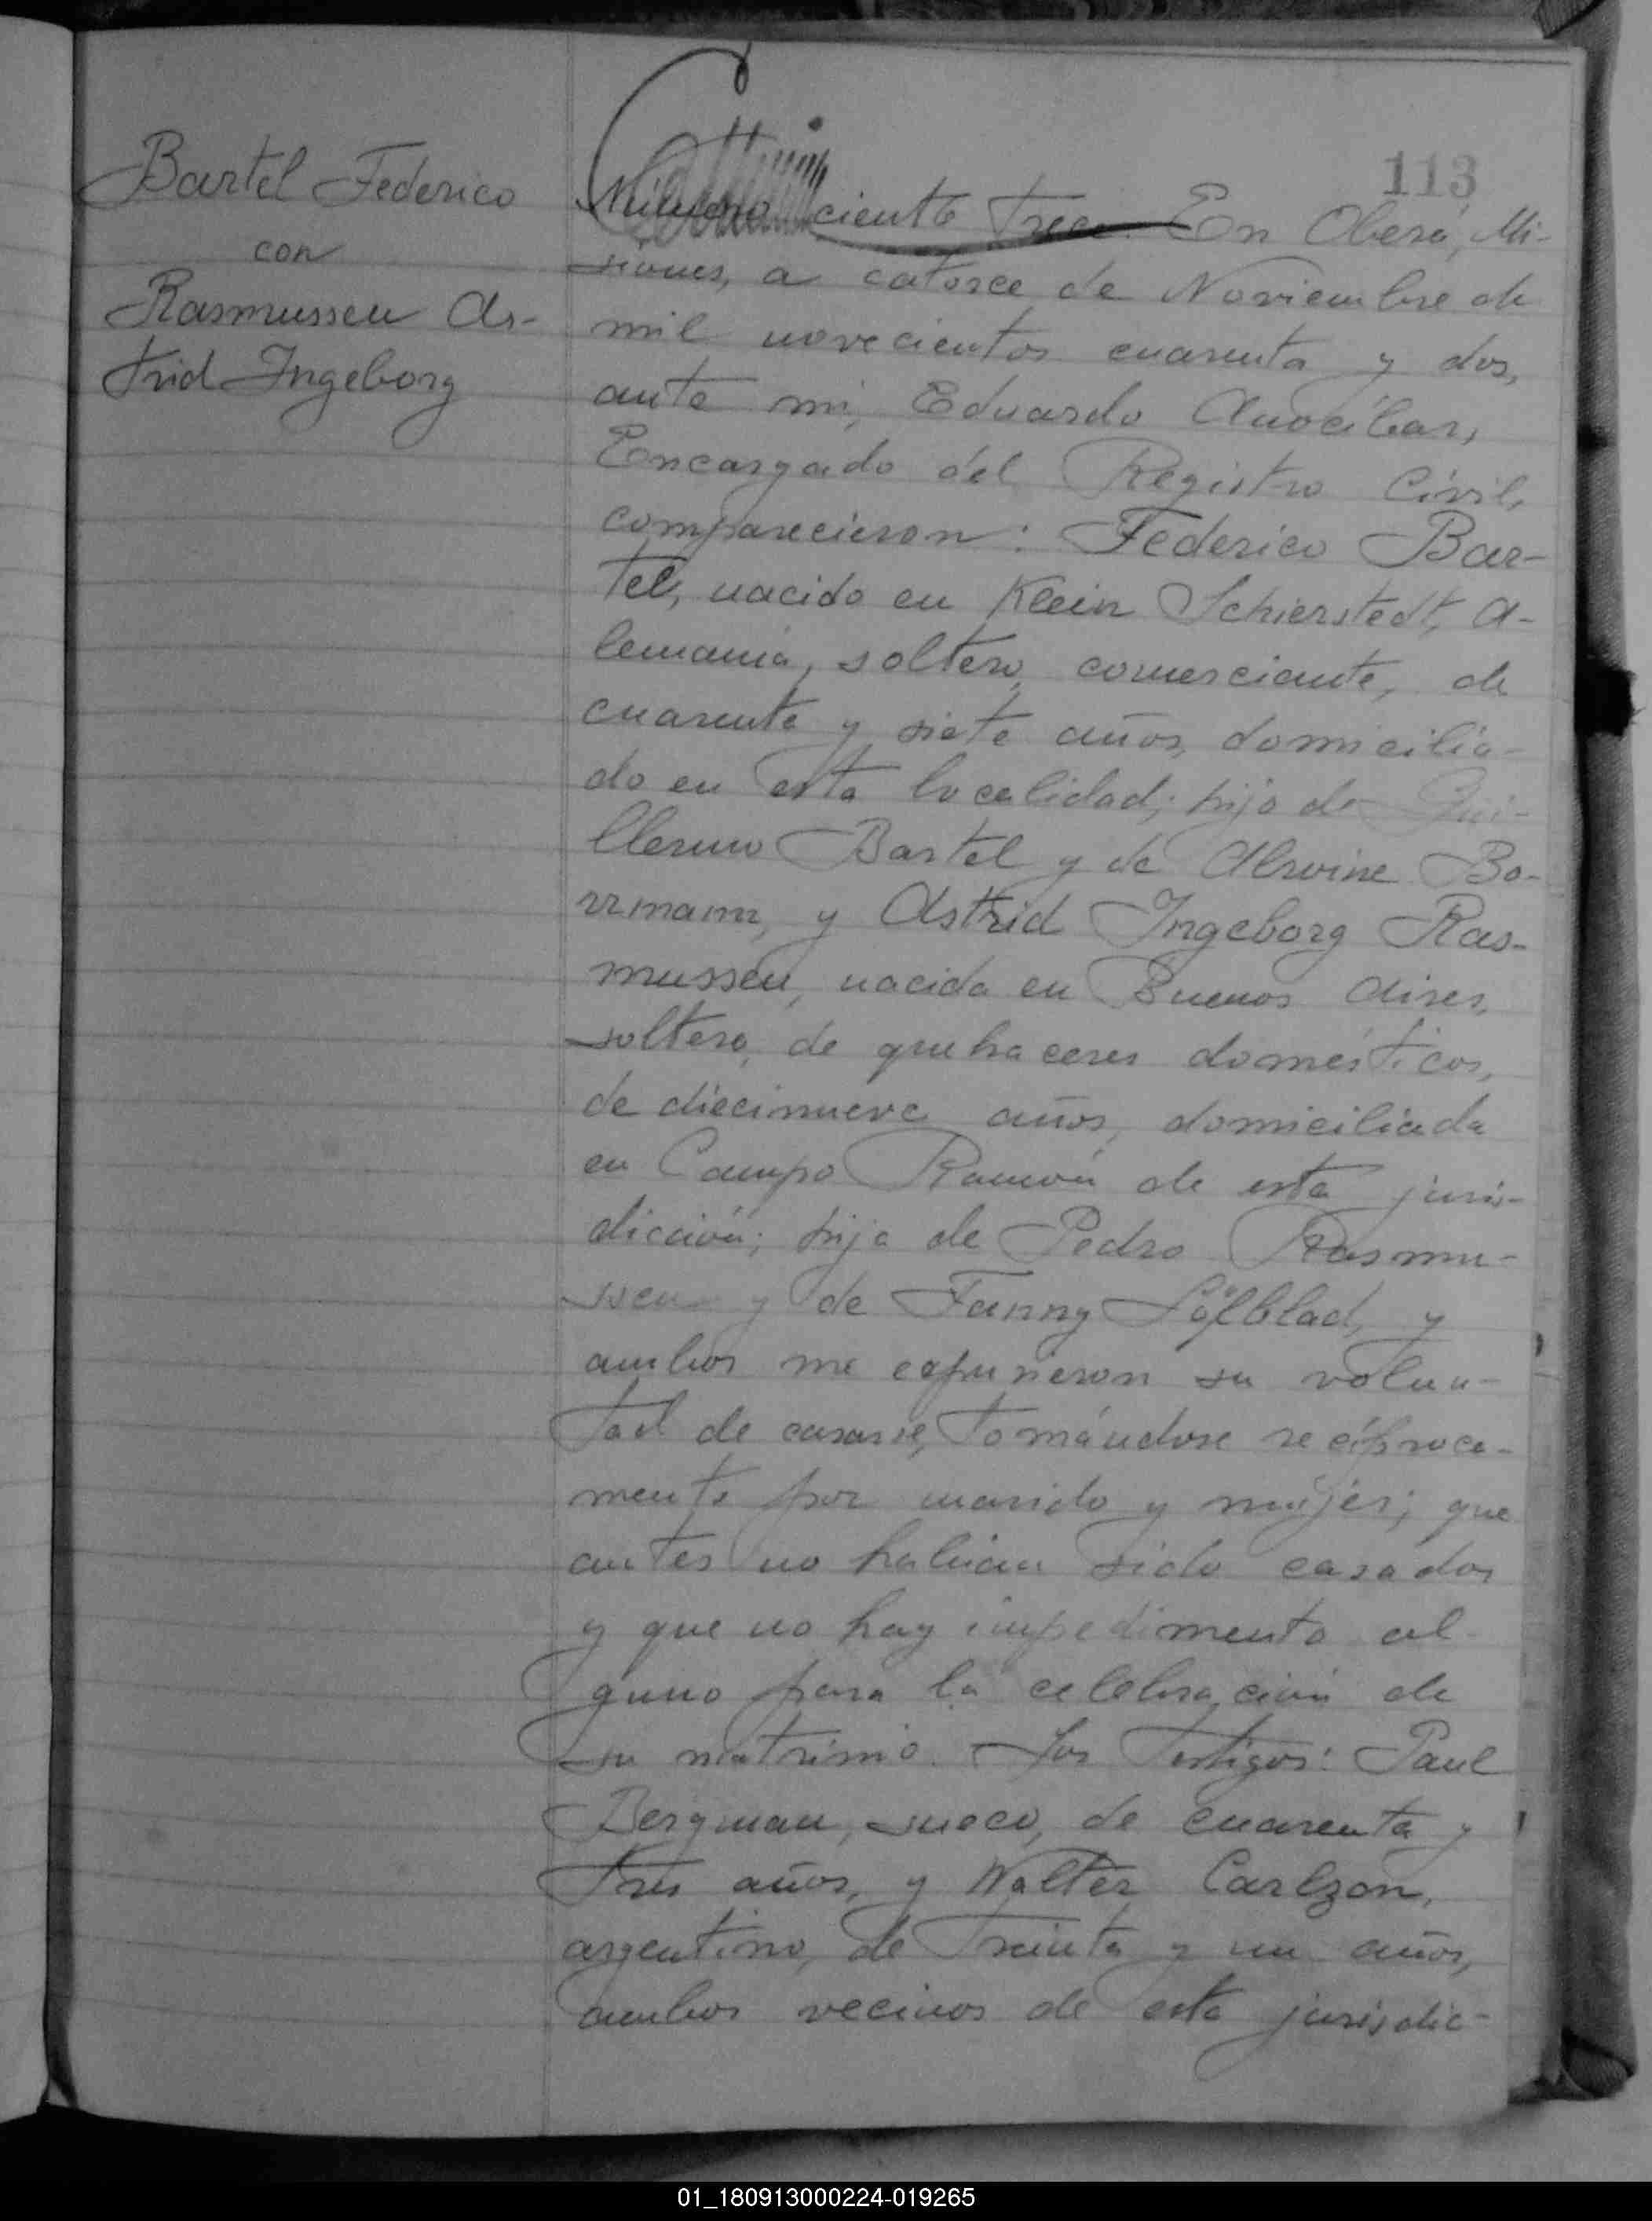 113
Bartel Federico
con
Rasmussen As-
trid Ingeborg
Número ciento trece. En Oberá, Mi-
siones, a catorce de Noviembre de
mil novecientos cuarenta y dos,
ante mi, Eduardo Anocíbar,
Encargado del Registro Civil,
comparecieron: Federico Bar-
tel, nacido en Klein Schierstedt, A-
lemania, soltero, comerciante, de
cuarenta y siete años, domicilia-
do en esta localidad; hijo de Gui-
llermo Bartel y de Alwine Bo-
rrmann, y Astrid Ingeborg Ras-
mussen, nacida en Buenos Aires,
soltera, de quehaceres domésticos,
de diecinueve años, domiciliada
en Campo Ramón de esta juris-
dicción; hija de Pedro Rasmu-
ssen y de Fanny Löfblad, y
ambos me expusieron su volun-
tad de casarse, tomándose recíproca-
mente por marido y mujer; que
antes no habían sido casados
y que no hay impedimento al-
guno para la celebración de
su matrimio. Los testigos: Paul
Bergman, sueco, de cuarenta y
tres años, y Walter Carlzon,
argentino, de treinta y un años,
ambos vecinos de esta jurisdic-
01_180913000224-019265